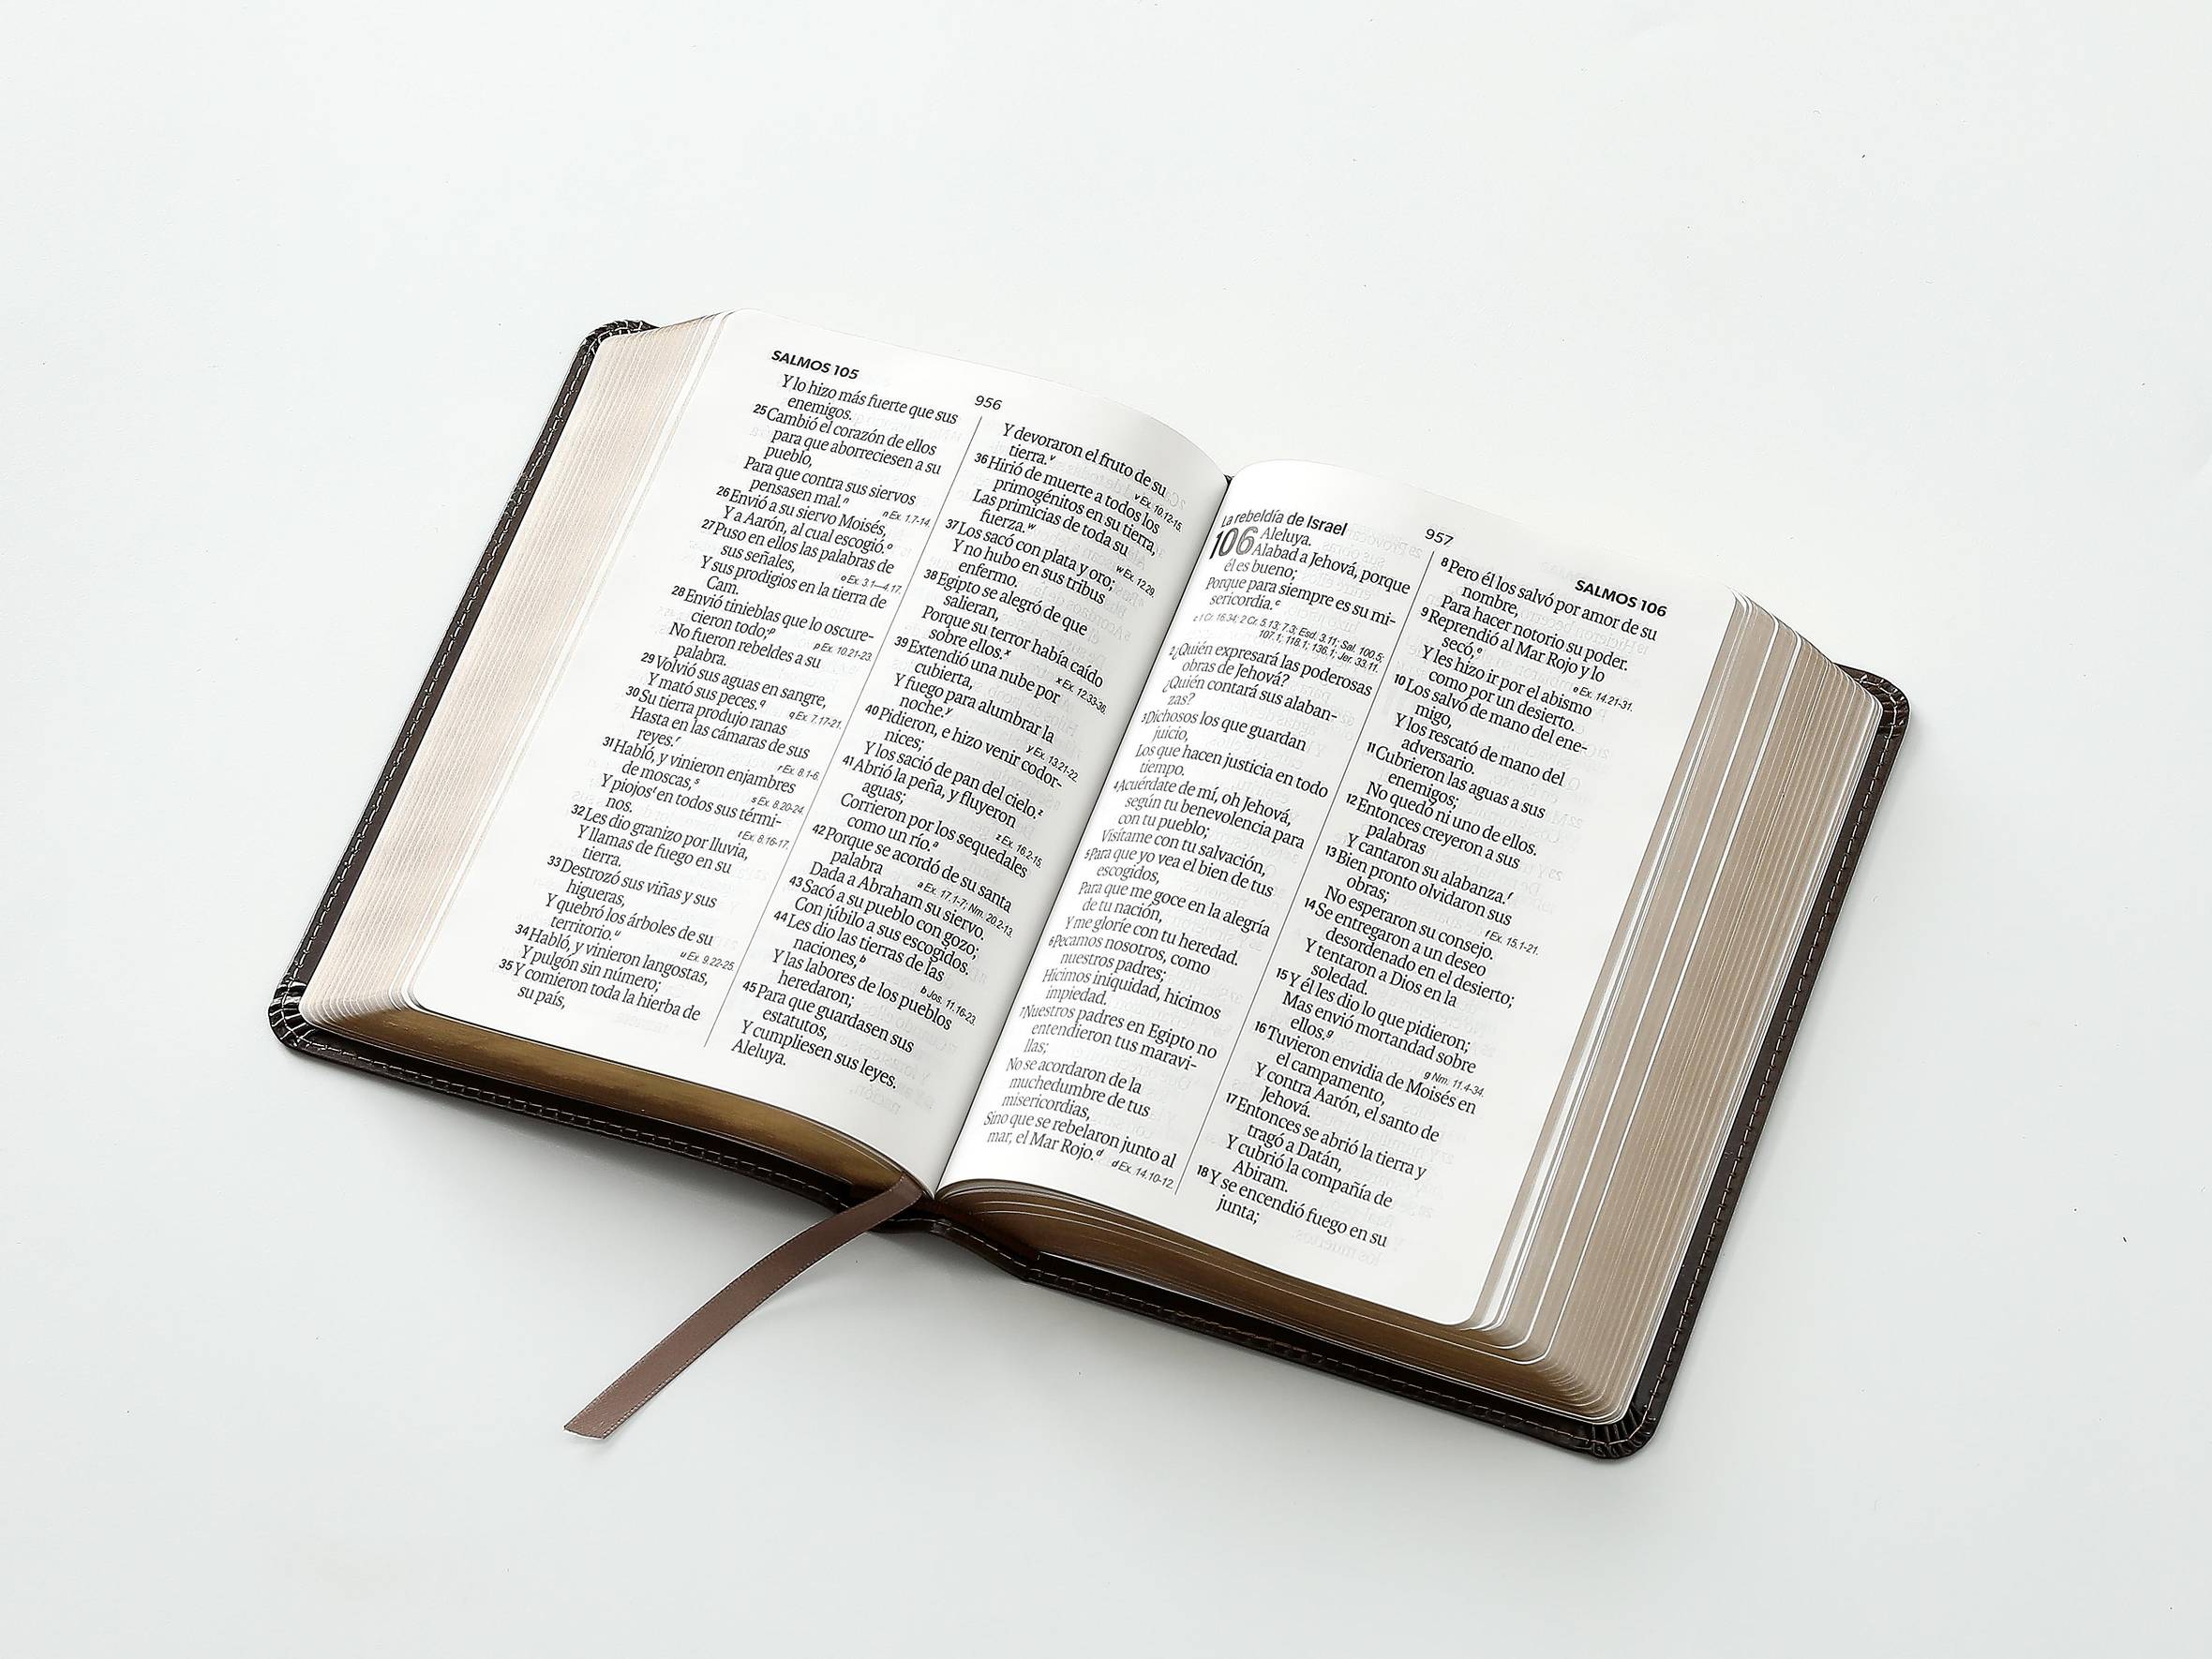 SALMOS 105
956
Y lo hizo más fuerte que sus
enemigos.
25 Cambió el corazón de ellos
para que aborreciesen a su
pueblo,
Para que contra sus siervos
pensasen mal.n
n Ex. 1.7-14.
26 Envió a su siervo Moisés,
Y a Aarón, al cual escogió.o
27 Puso en ellos las palabras de
sus señales,
o Ex. 3.1—4.17.
Y sus prodigios en la tierra de
Cam.
28 Envió tinieblas que lo oscure-
cieron todo;p
p Ex. 10.21-23.
No fueron rebeldes a su
palabra.
29 Volvió sus aguas en sangre,
Y mató sus peces.q
q Ex. 7.17-21.
30 Su tierra produjo ranas
Hasta en las cámaras de sus
reyes.r
r Ex. 8.1-6.
31 Habló, y vinieron enjambres
de moscas,s
s Ex. 8.20-24.
Y piojost en todos sus térmi-
nos.
t Ex. 8.16-17.
32 Les dio granizo por lluvia,
Y llamas de fuego en su
tierra.
33 Destrozó sus viñas y sus
higueras,
Y quebró los árboles de su
territorio.u
u Ex. 9.22-25.
34 Habló, y vinieron langostas,
Y pulgón sin número;
35 Y comieron toda la hierba de
su país,
Y devoraron el fruto de su
tierra.v
v Ex. 10.12-15.
36 Hirió de muerte a todos los
primogénitos en su tierra,
Las primicias de toda su
fuerza.w
w Ex. 12.29.
37 Los sacó con plata y oro;
Y no hubo en sus tribus
enfermo.
38 Egipto se alegró de que
salieran,
Porque su terror había caído
sobre ellos.x
x Ex. 12.33-36.
39 Extendió una nube por
cubierta,
Y fuego para alumbrar la
noche.y
y Ex. 13.21-22.
40 Pidieron, e hizo venir codor-
nices;
Y los sació de pan del cielo.z
z Ex. 16.2-15.
41 Abrió la peña, y fluyeron
aguas;
Corrieron por los sequedales
como un río.a
a Ex. 17.1-7; Nm. 20.2-13.
42 Porque se acordó de su santa
palabra
Dada a Abraham su siervo.
43 Sacó a su pueblo con gozo;
Con júbilo a sus escogidos.
44 Les dio las tierras de las
naciones,b
b Jos. 11.16-23.
Y las labores de los pueblos
heredaron;
45 Para que guardasen sus
estatutos,
Y cumpliesen sus leyes.
Aleluya.
957
SALMOS 106
La rebeldía de Israel
106 Aleluya.
Alabad a Jehová, porque
él es bueno;
Porque para siempre es su mi-
sericordia.c
c 1 Cr. 16.34; 2 Cr. 5.13; 7.3; Esd. 3.11; Sal. 100.5;
107.1; 118.1; 136.1; Jer. 33.11.
2 ¿Quién expresará las poderosas
obras de Jehová?
¿Quién contará sus alaban-
zas?
3 Dichosos los que guardan
juicio,
Los que hacen justicia en todo
tiempo.
4 Acuérdate de mí, oh Jehová,
según tu benevolencia para
con tu pueblo;
Visítame con tu salvación,
5 Para que yo vea el bien de tus
escogidos,
Para que me goce en la alegría
de tu nación,
Y me gloríe con tu heredad.
6 Pecamos nosotros, como
nuestros padres;
Hicimos iniquidad, hicimos
impiedad.
7 Nuestros padres en Egipto no
entendieron tus maravi-
llas;
No se acordaron de la
muchedumbre de tus
misericordias,
Sino que se rebelaron junto al
mar, el Mar Rojo.d
d Ex. 14.10-12.
8 Pero él los salvó por amor de su
nombre,
Para hacer notorio su poder.
9 Reprendió al Mar Rojo y lo
secó,e
e Ex. 14.21-31.
Y les hizo ir por el abismo
como por un desierto.
10 Los salvó de mano del ene-
migo,
Y los rescató de mano del
adversario.
11 Cubrieron las aguas a sus
enemigos;
No quedó ni uno de ellos.
12 Entonces creyeron a sus
palabras
Y cantaron su alabanza.f
f Ex. 15.1-21.
13 Bien pronto olvidaron sus
obras;
No esperaron su consejo.
14 Se entregaron a un deseo
desordenado en el desierto;
Y tentaron a Dios en la
soledad.
15 Y él les dio lo que pidieron;
Mas envió mortandad sobre
ellos.g
g Nm. 11.4-34.
16 Tuvieron envidia de Moisés en
el campamento,
Y contra Aarón, el santo de
Jehová.
17 Entonces se abrió la tierra y
tragó a Datán,
Y cubrió la compañía de
Abiram.
18 Y se encendió fuego en su
junta;